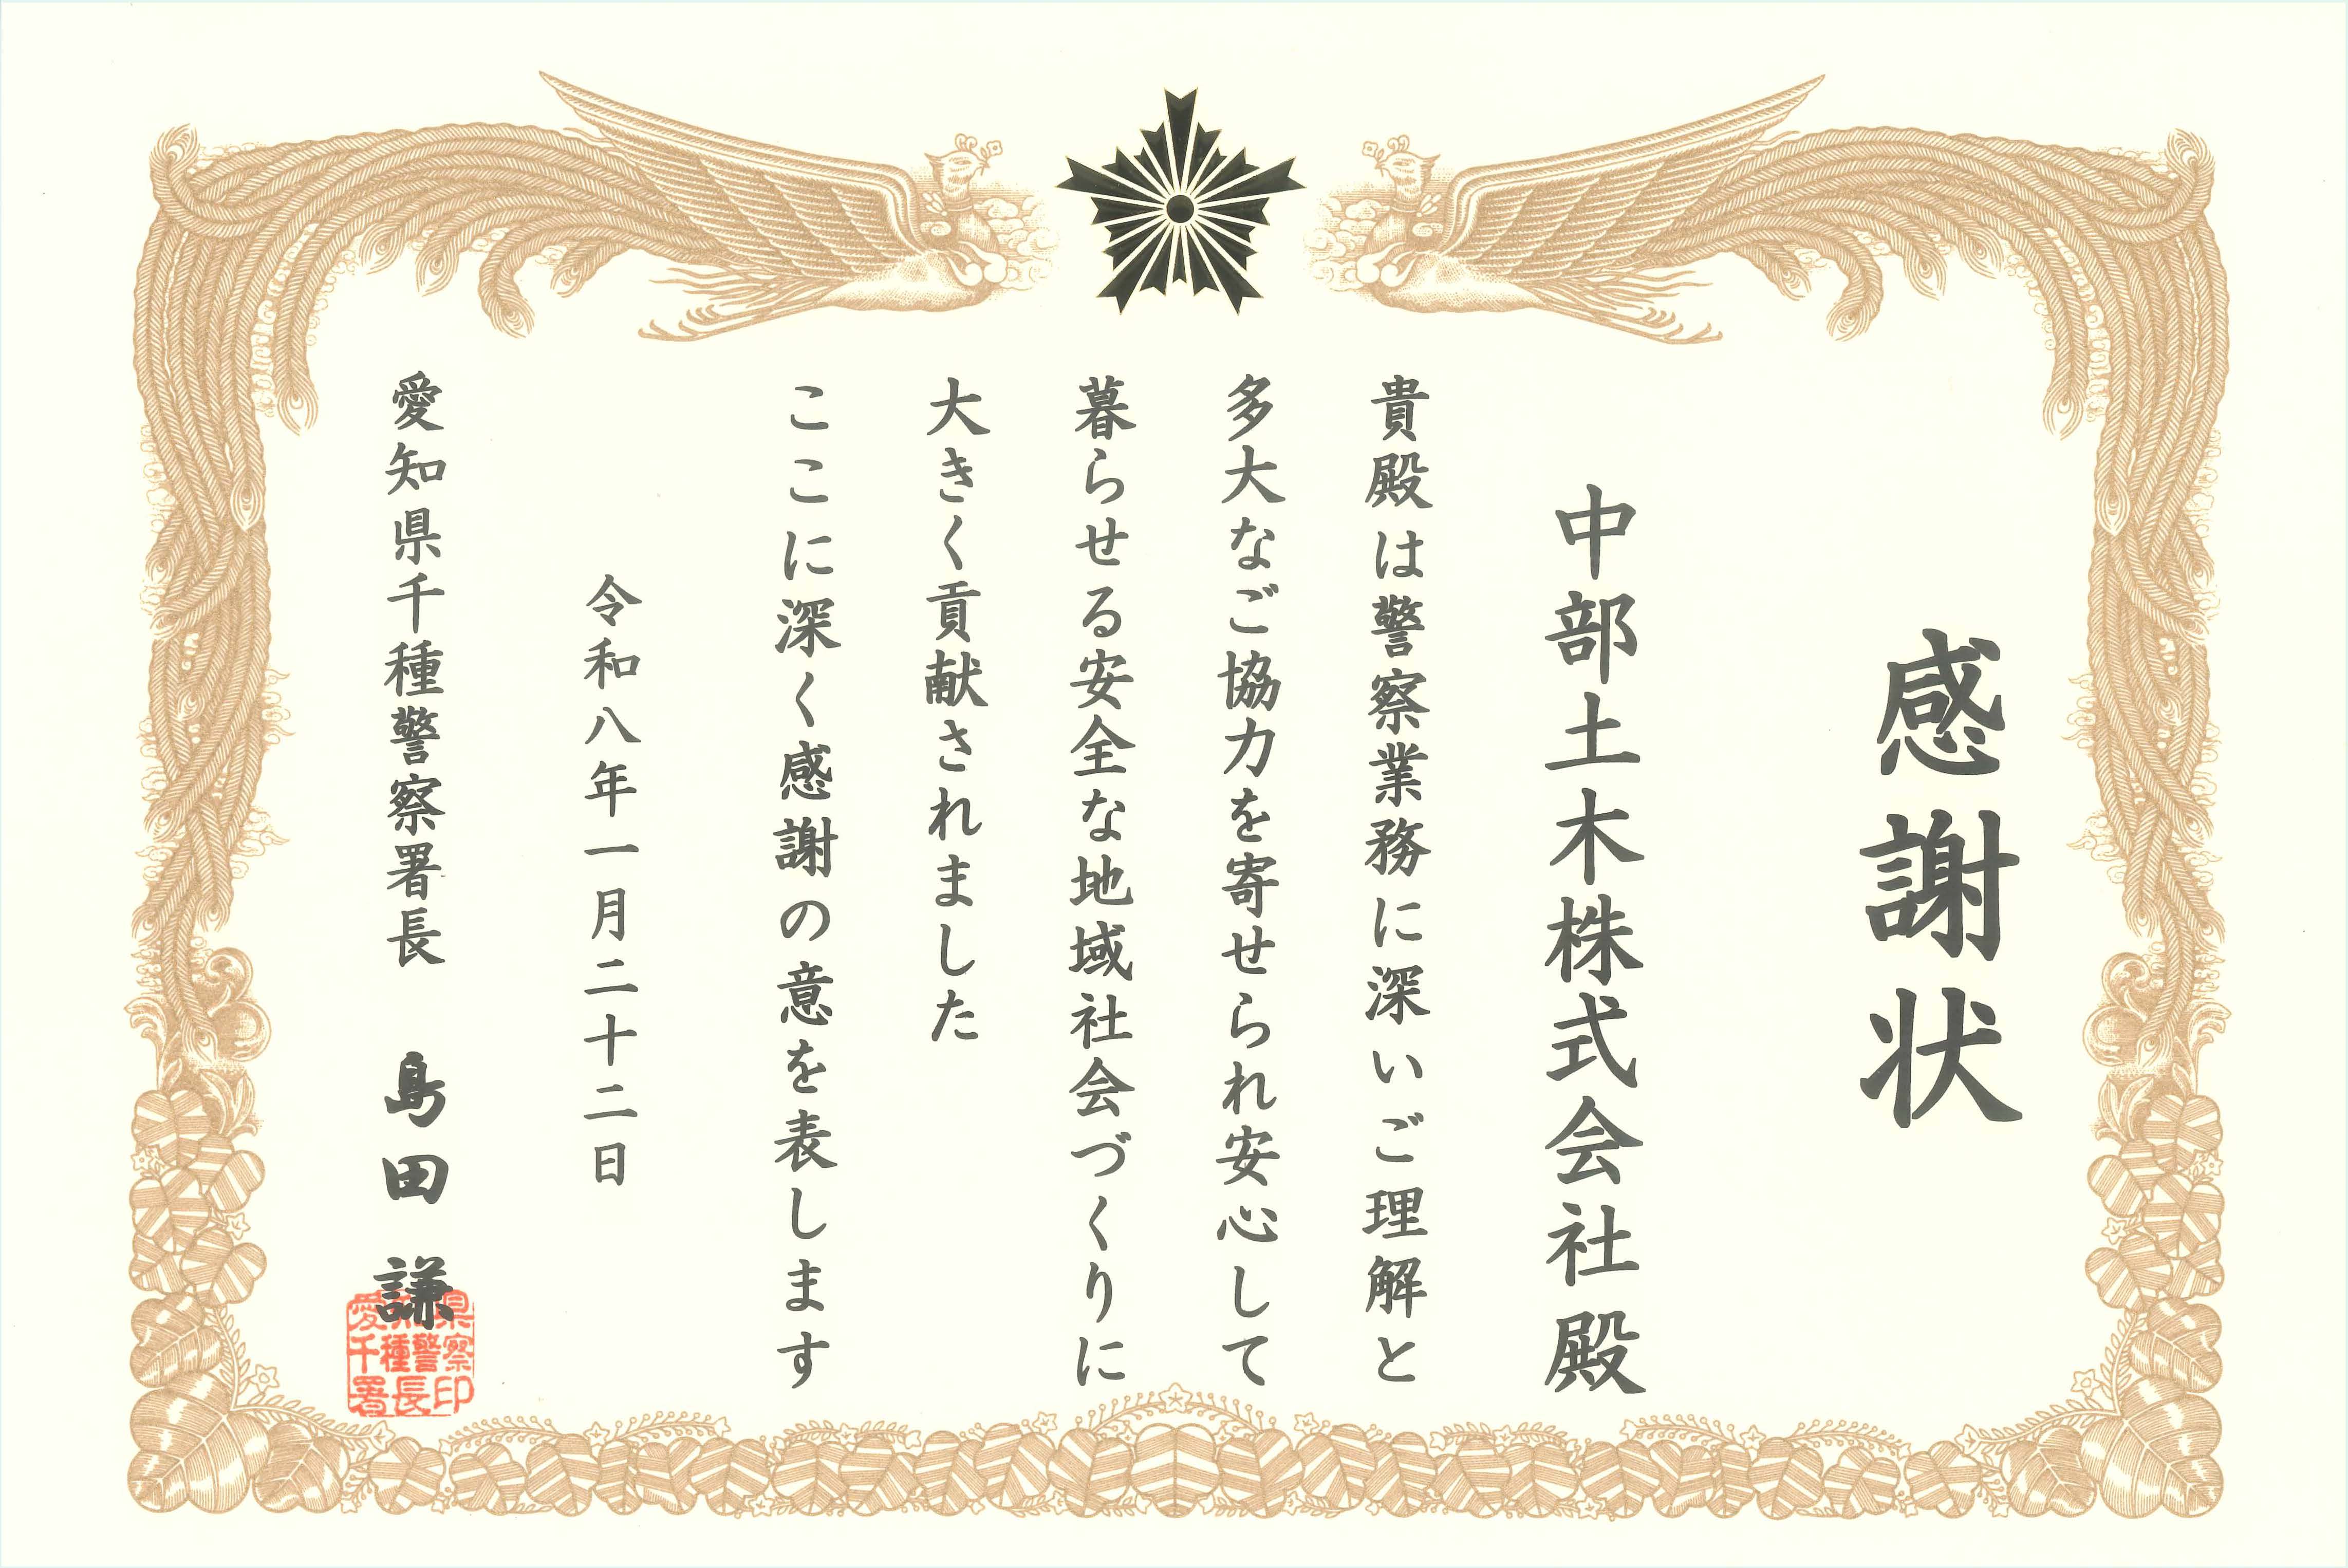 感謝状
中部土木株式会社殿
貴殿は警察業務に深いご理解と
多大なご協力を寄せられ安心して
暮らせる安全な地域社会づくりに
大きく貢献されました
ここに深く感謝の意を表します
令和八年一月二十二日
愛知県千種警察署長 島田謙
愛知県
千種警察
署長印